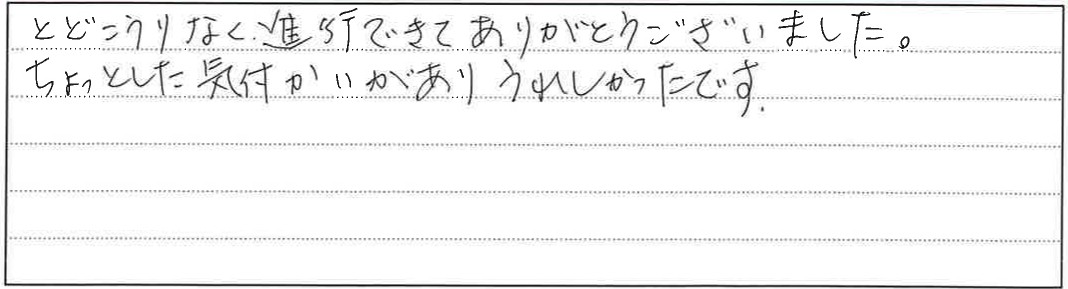 とどこうりなく進行できてありがとうございました。
ちょっとした気付かいがありうれしかったです.